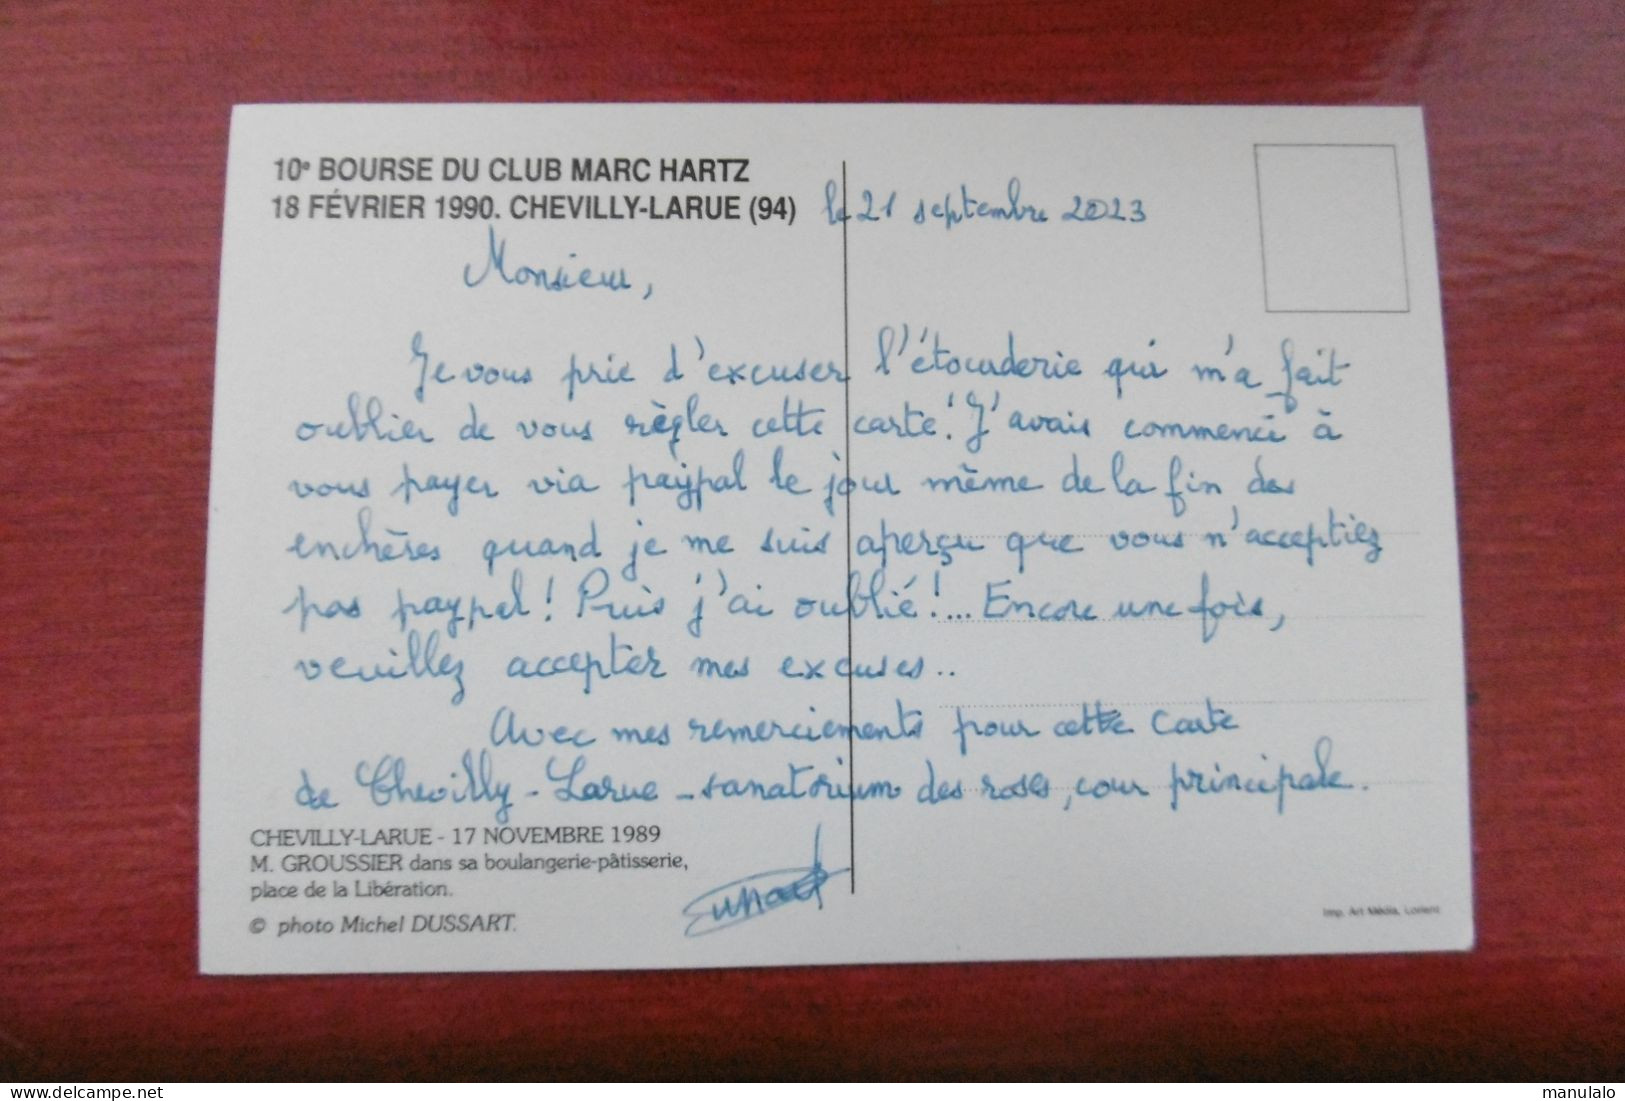 10e BOURSE DU CLUB MARC HARTZ
18 FÉVRIER 1990. CHEVILLY-LARUE (94)
le 21 septembre 2023
Monsieur,
Je vous prie d'excuser l'étourderie qui m'a fait
oublier de vous règler cette carte! J'avais commencé à
vous payer via paypal le jour même de la fin des
enchères quand je me suis aperçu que vous n'acceptiez
pas paypal! Puis j'ai oublié!... Encore une fois,
veuillez accepter mes excuses..
Avec mes remerciements pour cette carte
de Chevilly-Larue - sanatorium des roses, cour principale.
CHEVILLY-LARUE - 17 NOVEMBRE 1989
M. GROUSSIER dans sa boulangerie-pâtisserie,
place de la Libération.
© photo Michel DUSSART.
Imp. Art Média, Lorient
delcampe.net
manulalo